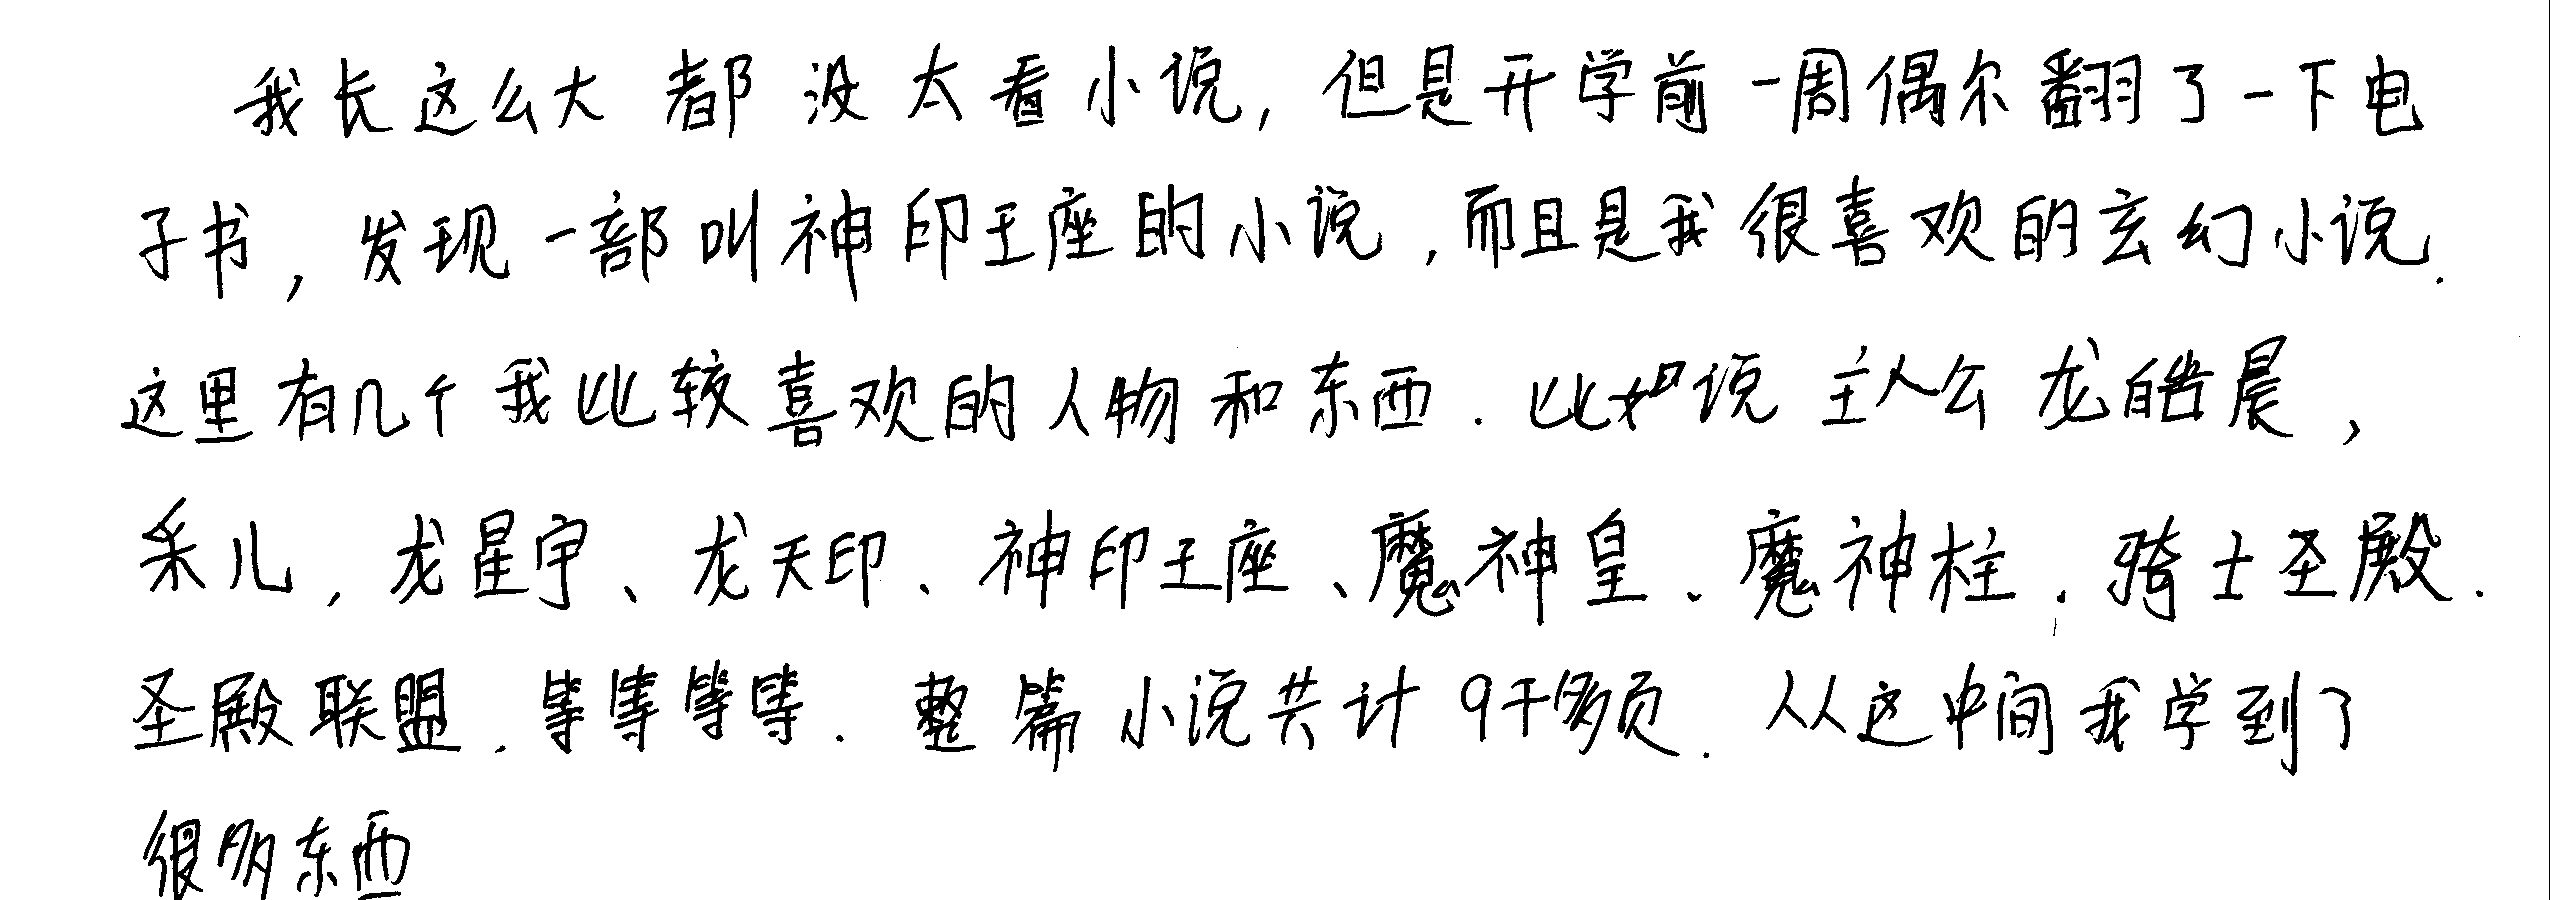 我长这么大都没太看小说,但是开学前一周偶尔翻了一下电
子书,发现一部叫神印王座的小说,而且是我很喜欢的玄幻小说.
这里有几个我比较喜欢的人物和东西.比如说主人公龙皓晨,
采儿,龙星宇、龙天印、神印王座、魔神皇、魔神柱.骑士圣殿.
圣殿联盟.等等等等.整篇小说共计9千多页.从这中间我学到了
很多东西